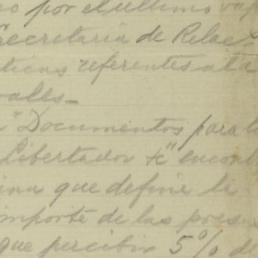 no por el ultimo vap
Secretaria de Relac
ticas referentes a la
valles.-
"Documentos para la
Libertador &" encont
ina que define li
importe de las
que percibir 5% de